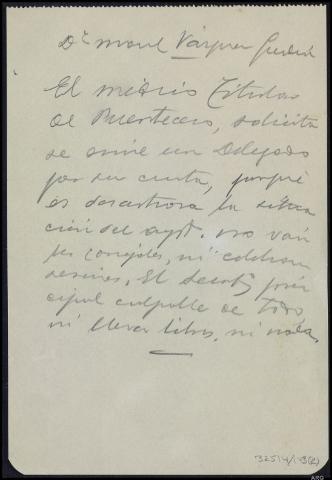 Dn. Manl Vázquez
El médico titular
de Puentecesures, solicita
se envie un Delegado
por su cuenta, porqué
es desastrosa la situa
ción del aynt. no van
los concejales, ni celebran
sesiones. El Secretº prin
cipal culpable de todo
ni lleva libros, ni nada.
32514/13(2)
ARG